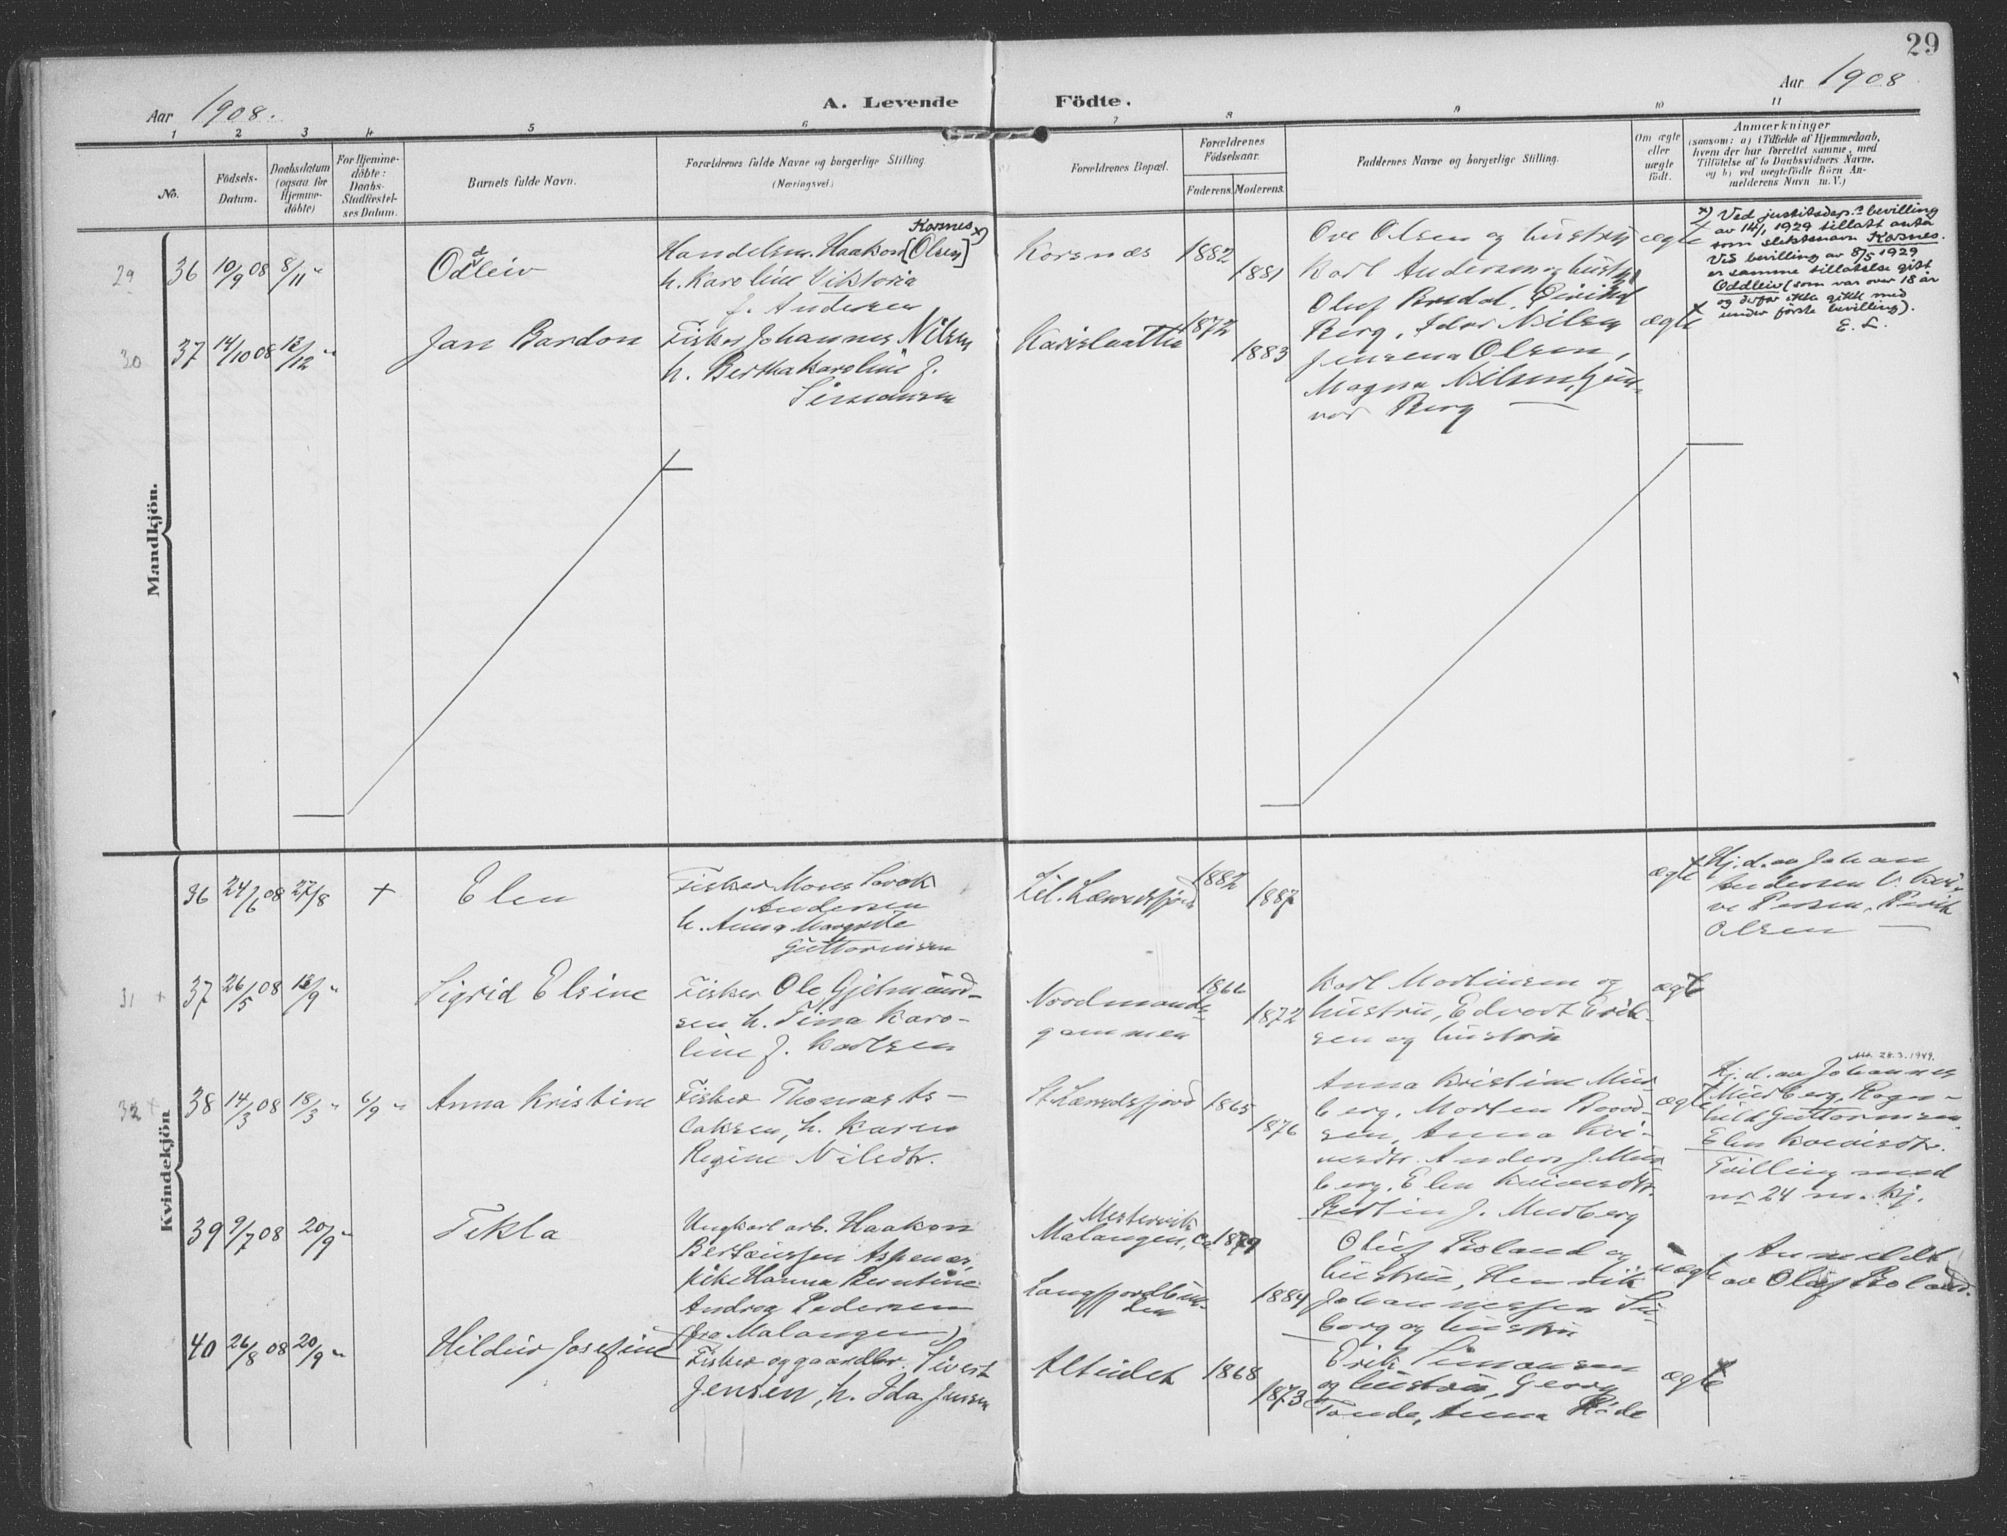 29
Aar 1908.
A. Levende Födte.
Aar 1908
1 2 3 4 5 6 7 8 9 10 11
No.
Födsels-
Datum.
Daabsdatum
(ogsaa for
Hjemme-
döbte)
For Hjemme-
döbte:
Daabs-
Stadfæstel-
ses Datum.
Barnets fulde Navn.
Forældrenes fulde Navne og borgerlige Stilling
(Næringsvei)
Forældrenes Bopæl.
Forældrenes
Födselsaar.
Faderens. Moderens.
Faddernes Navne og borgerlige Stilling.
Om ægte
eller
uægte
födt.
Anmærkninger
(saasom: a) i Tilfælde af Hjemmedaab,
hvem der har forrettet samme, med
Tilföielse af to Daabsvidners Navne,
og b) ved uægtefödte Börn An-
melderens Navn m. V.)
Mandkjön.
29 36 10/9 08 8/11 "
Oddleiv
Korsnes x)
Handelsm. Haakon [Olsen]
h. Karoline Viktoria
f. Andersen
Korsnæs 1882 1881
Ove Olsen og hustru
Karl Andersen og hustru
Oluf Bredal
ægte
x) Ved justitsdep.s bevilling
av 14/1 1929 tillatt anta
som slektsnavn Korsnes.
Ved bevilling av 8/5 1929
er samme tillatelse gitt
Oddleiv (som var over 18 år
og derfor ikke gikk med
under første bevilling).
E. L.
30 37 14/10 08 13/12 "
Jan Bardon
Fisker Johannes Nilsen
h. Bertha Karoline f.
Simonsen
1872 1883
Berg, Nilsen
Jensena Olsen,
Magna Nilsen, Gun-
vor Berg
ægte
Kvindekjön
36 24/6 08 27/8 +
Elen
Fisker Mons
Andersen
h. Anna Margrete
Guttormsen
Lil. Lærredsfjord 1882 1887
ægte
Hj. d. av Johan
Andersen
Persen,
Olsen
31 + 37 26/5 08 13/9 "
Sigrid Elsine
Fisker Ole Gjetmund-
sen h. Tina Karo-
line f. Karlsen
Nordmands-
gammen
1866 1872
Karl Martinsen og
hustru, Edvart Erik-
sen og hustru
ægte
32 + 38 14/3 08 18/3 " 6/9 "
Anna Kristine
Fisker Thomas Is-
caksen, h. Karen
Regine Nilsdtr.
St. Lærredsfjord 1865 1876
Anna Kristine Mur-
berg, Morten
sen, Anna
Anders J. Mur-
berg, Elen
Kristin J. Murberg
ægte
28.3.1949.
Hj. d. av Johannes
Murberg, Ragn-
hild Guttormsen
Elen
Tvilling med
nr 24 m. kj.
39 9/7 08 20/9 "
Tekla
Ungkarl arb. Haakon
Bertheussen Aspenes,
pike Hanna Berntine
Andrea Pedersen
(fra Malangen)
Mestervik
Malangen, Ca 1879
Langfjordbun-
den 1884
Oluf Boland og
hustru, Henrik
Johannessen
og hustru
uægte
Anmeldt
av Oluf Boland.
40 26/8 08 20/9 "
Hildur Josefine
Fisker og gaardbr. Sivert
Jensen, h. Ida Jensen
Alteidet 1868 1873
Erik Simonsen
og hustru, Georg
Tande, Anna
ægte